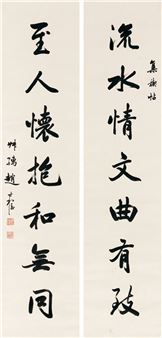 集禊帖
流水情文曲有致
至人懷抱和無同
叔孺趙時棡